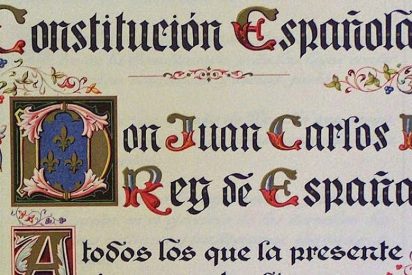 Constitución Española
Don Juan Carlos
Rey de España
A todos los que la presente